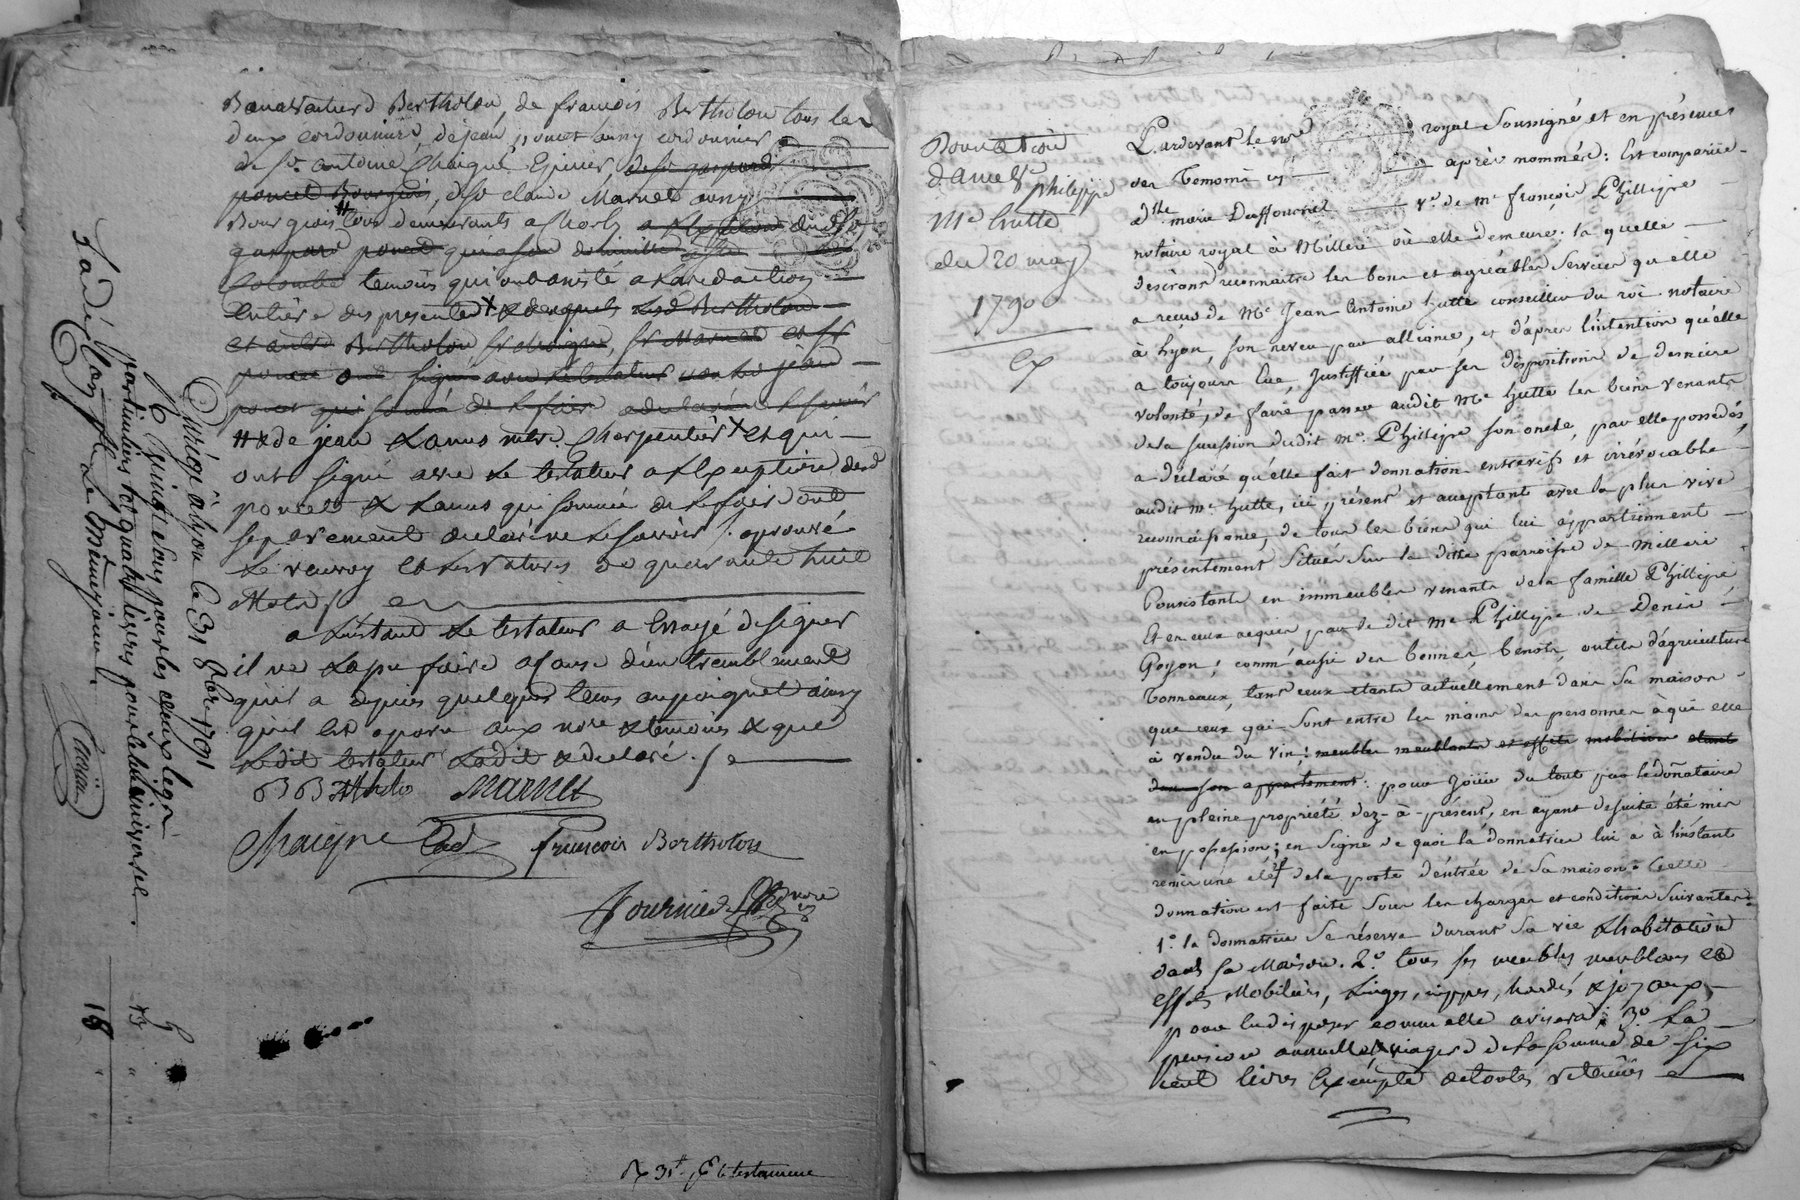 Bertholon, de françois Bertholon tous les
deux cordonniers, de jean poncet aussy cordonnier
de Sr. antoine Chaigne Epicier, de Sr gaspard
poncet Bourgeois, de Sr claude Marnet aussy
Bourgeois # tous demeurants a Charly a l'exception dudt Sr
gaspard poncet qui a son domicille
colombe temoins qui ont assisté a la redaction
entière des presentes x & desquels les d Bertholon
et autre Bertholon, Sr chaigne, Sr Marnet et Sr
poncet ont signé avec le testateur non led jean
poncet qui sommé de le faire a declaré ne le savoir
# & de jean Lanus mtre. Charpentier x et qui
ont signé avec le testateur a l'exception desd
poncet & Lanus qui sommés de le faire ont
separement declaré ne le savoir /. aprouvé
le renvoy et les ratures de quarante huit
mots /.
a l'instant le testateur a Essayé de signer
il ne l'a pu faire a cause d'un tremblement
qu'il a depuis quelques tems au poignet ainsy
qu'il est aparu aux nore & temoins & que
ledit testateur l'a dit & declaré ./.
Marnet
Chaigne Cad françois Bertholon
Fournier nore
R 31t. le testament
Durégé à Lyon le 31 8bre 1791
R quinze sous pour les deux legs
particuliers et quatre livres pour l'universel.
Le Même jour
18
Donnation
d'ame Ve philippe
Me hutte
du 20 may
1790
ex
Pardevant le nre royal soussigné et en présences
des Temoins après nommés: Est comparüe
dlle marie Duffournel ve. de me françois Phillipe
notaire royal à Millery où elle demeure; la quelle
desirant reconnaitre les bons et agréables services qu'elle
a reçu de Me Jean Antoine hutte conseiller du roi notaire
à Lyon, son neveu par alliance, et d'après l'intention qu'elle
a toujours Eue, Justiffiée par ses dispositions de dernière
volonté, de faire passer audit Me hutte les biens venants
de la succession dudit me. Phillipe son oncle, par elle possedés,
a déclaré qu'elle fait donnation entrevifs et irrévocable
audit Me hutte, ici présent et aceptant avec la plus vive
reconnoissance, de tous les biens qui lui appartiennent
présentement situés sur la ditte paroisse de Millery
Consistants en immeubles venants de la famille Phillipe
Et en ceux acquis par le dit me Phillipe de Denis
Goyon; comm'aussi des bennes benots, outils d'agriculture
Tonneaux, tant ceux étants actuellement dans sa maison
que ceux qui sont entre les mains des personnes à qui elle
à vendu du vin; meubles meublants et effets mobiliers etant
dans son appartement: pour joüir du tout par le donataire
en pleine propriété dez-à-présent, en ayant desuite été mis
en possession; en signe de quoi la donnatrice lui a à l'instant
remis une clef de la porte d'entrée de sa maison. Cette
donnation est faite sous les charges et conditions suivantes:
1º. la donnatrice se réserve durant sa vie l'habitation
dans sa Maison. 2.º tous ses meubles meublans et
effets Mobiliers, Linges, nippes, hardes & joyaux,
pour en disposer comm'elle avisera; 3º La
pension annuelle & viagere de la somme de six
cent livres Exempte de toutes retenües